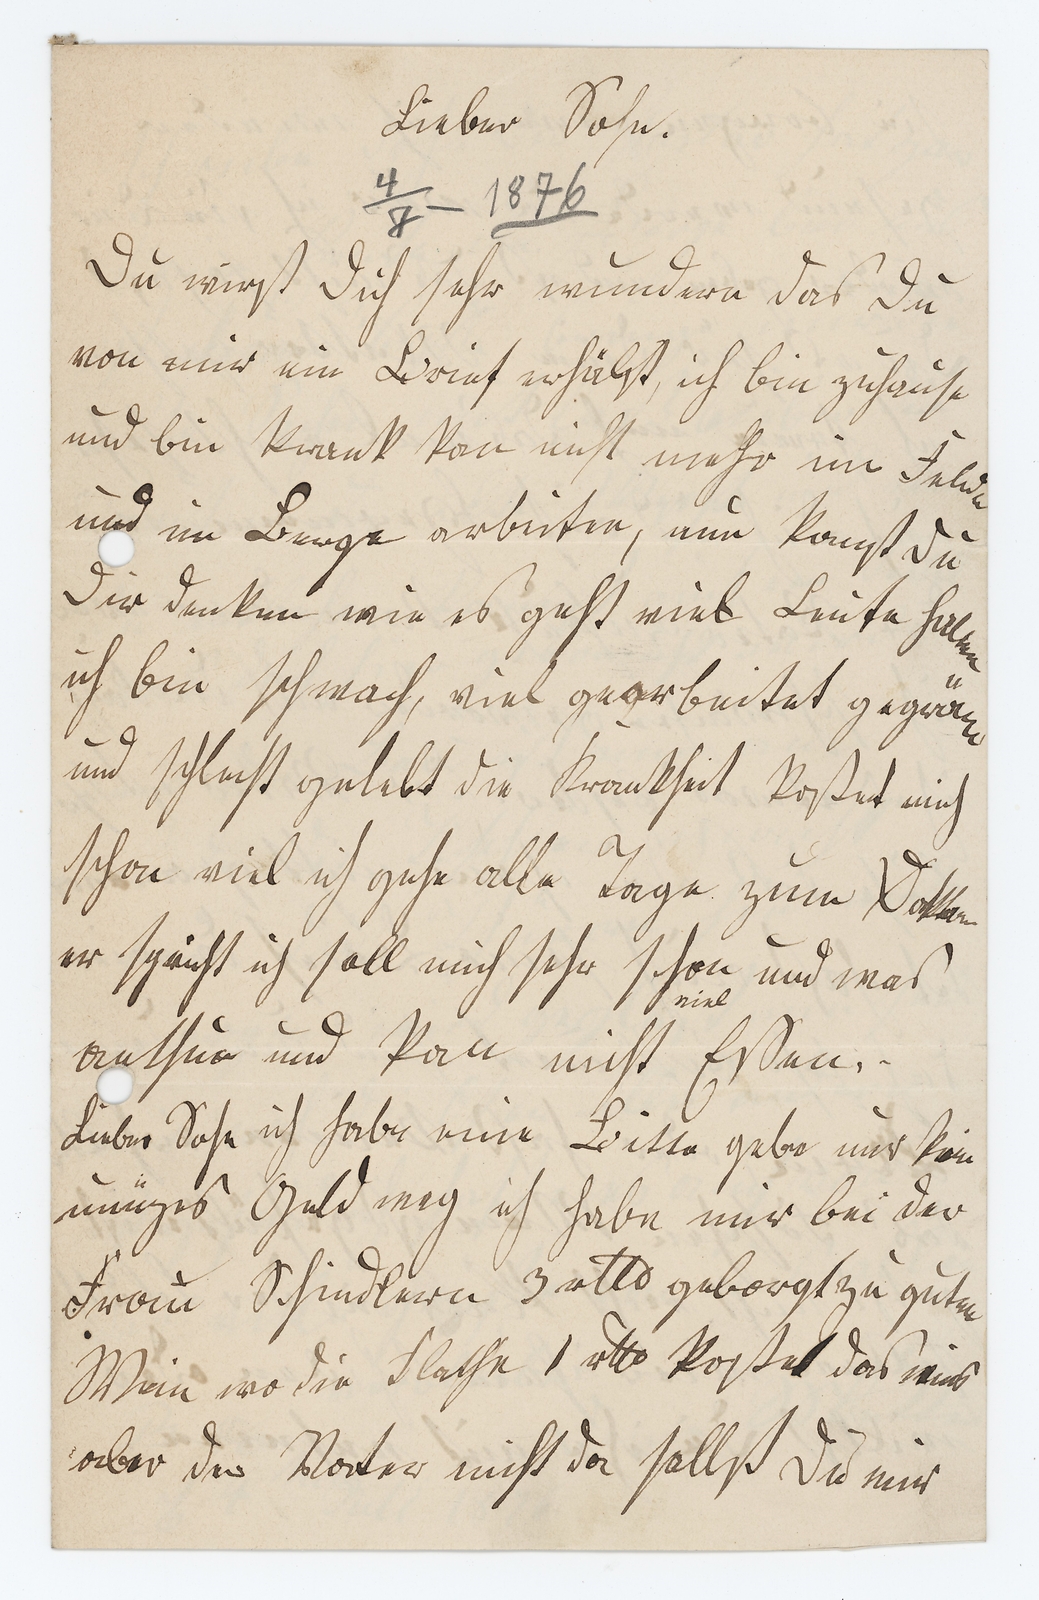 Lieber Sohn.
4/8 – 1876
Du wirst Dich sehr wundern das Du
von mir ein Brief erhälst, ich bin zuhause
und bin krank kan nicht mehr im Felde
und im Berge arbeiten, nun kanst Du
Dir denken wie es geht viel Leute halten
ich bin schwach, viel gearbeitet gegräm
und schlecht gelebt die Krankheit kostet mich
schon viel ich gehe alle Tage zum Doktor
er spricht ich soll mich sehr schon und was
viel
anthun und kan nicht Essen. -
Lieber Sohn ich habe eine Bitte gebe nur kein
unüzes Geld weg ich habe mir bei der
Frau Schindlern 3 geborgt zu guten
Wein wo die Flasche 1 kostet das
aber der Vater nicht da sollst Du mir